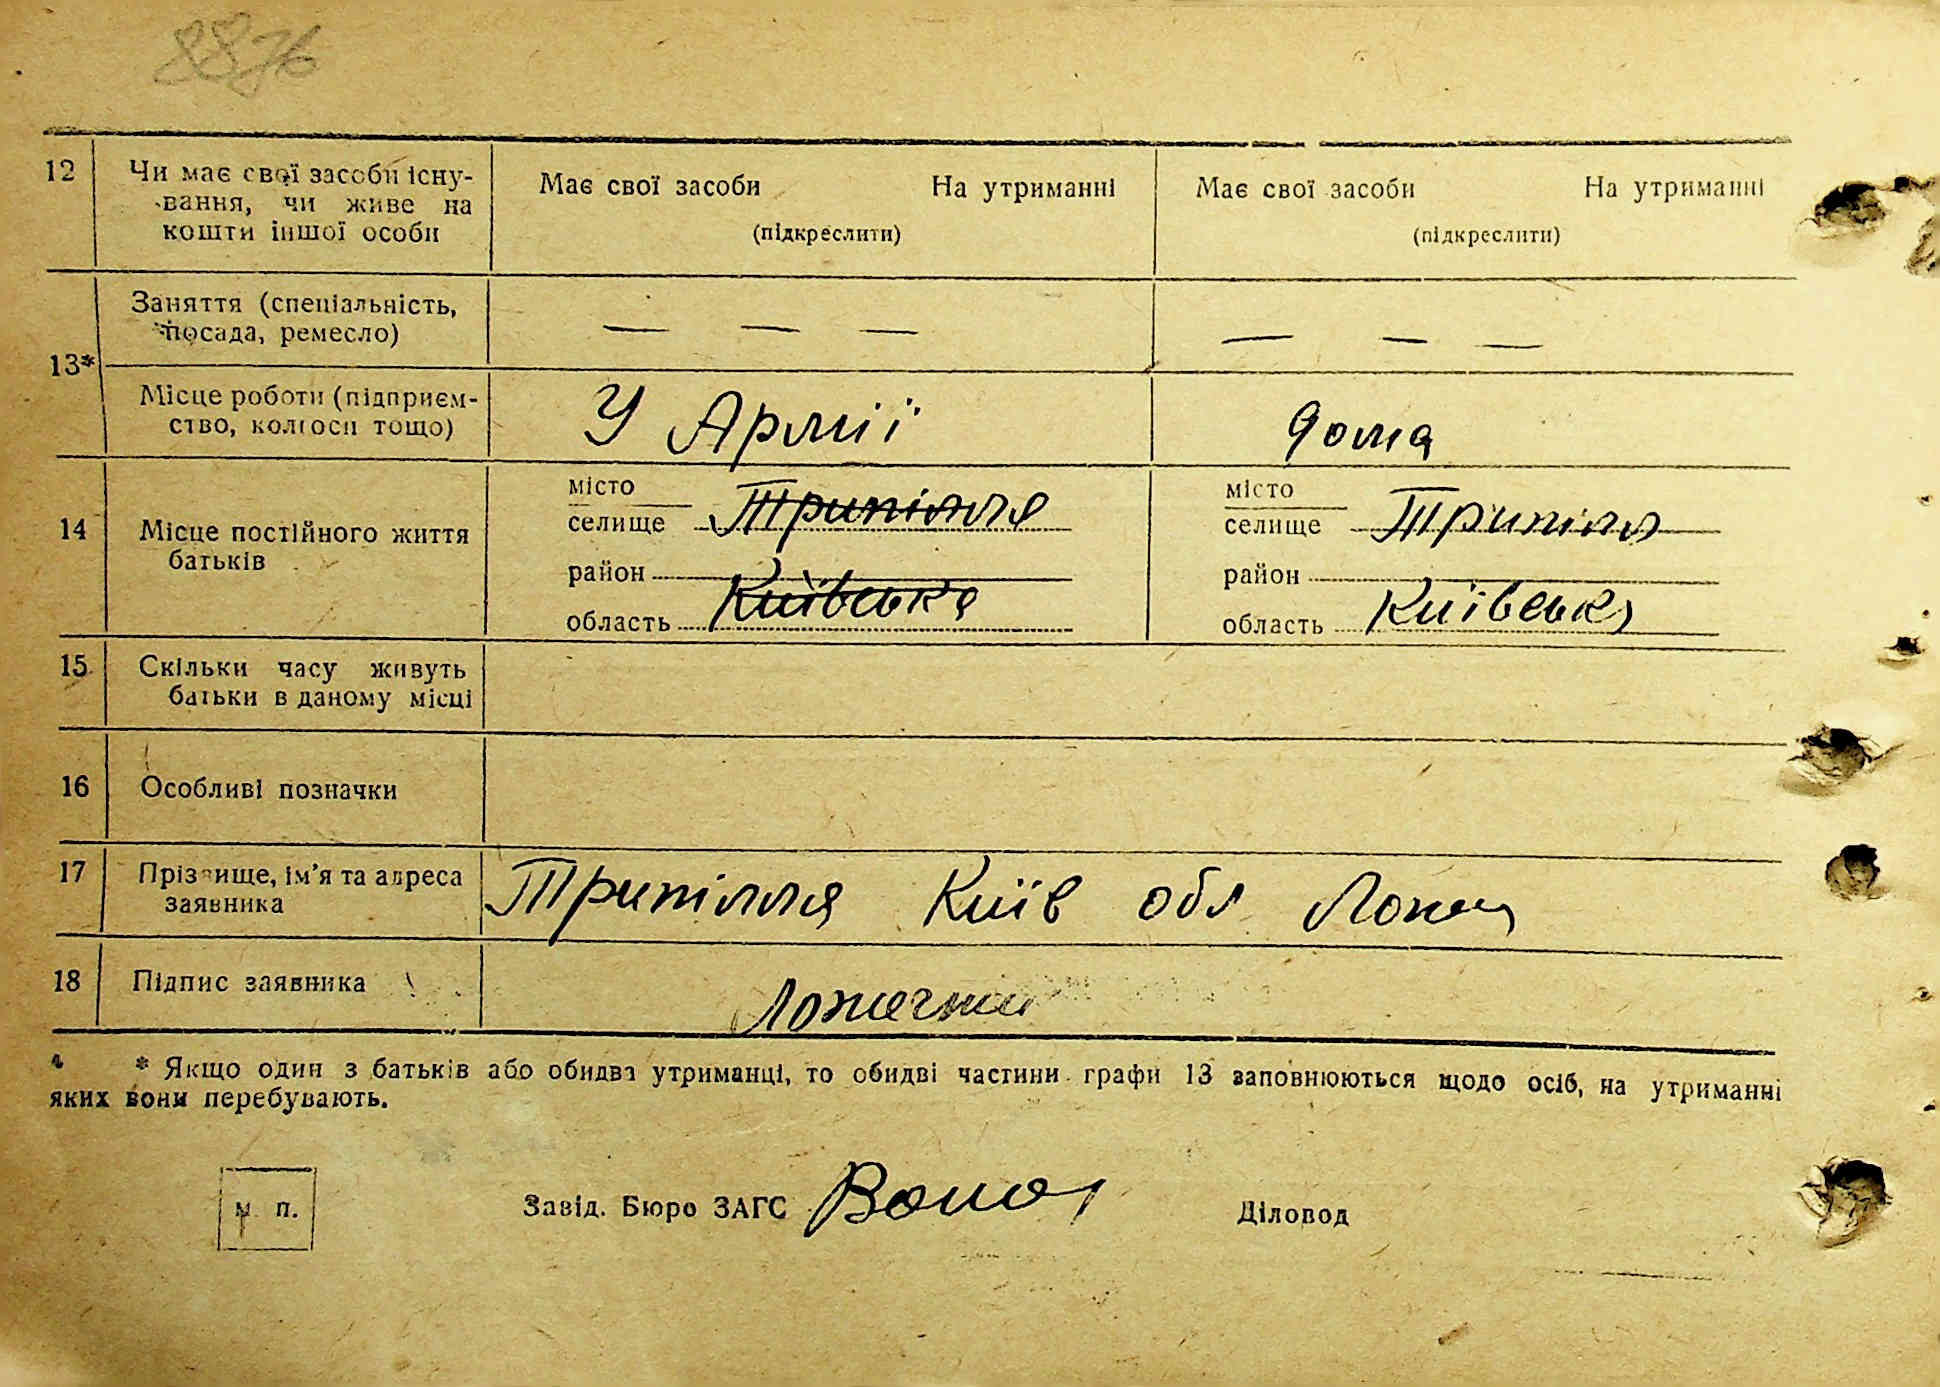 8876
12 Чи має свої засоби існу- Має свої засоби На утриманні Має свої засоби На утриманні
вання, чи живе на
кошти іншої особи (підкреслити) (підкреслити)
Заняття (спеціальність, — — — — — —
посада, ремесло)
13*
Місце роботи (підприєм- У Армії дома
ство, колгосп тощо)
місто місто
14 Місце постійного життя селище Трипілля селище Трипілля
батьків район район
область Київська область Київська
15 Скільки часу живуть
батьки в даному місці
16 Особливі позначки
17 Прізвище, ім'я та адреса Трипілля Київ обл
заявника
18 Підпис заявника
* Якщо один з батьків або обидва утриманці, то обидві частини графи 13 заповнюються щодо осіб, на утриманні
яких вони перебувають.
м. п. Завід. Бюро ЗАГС Діловод